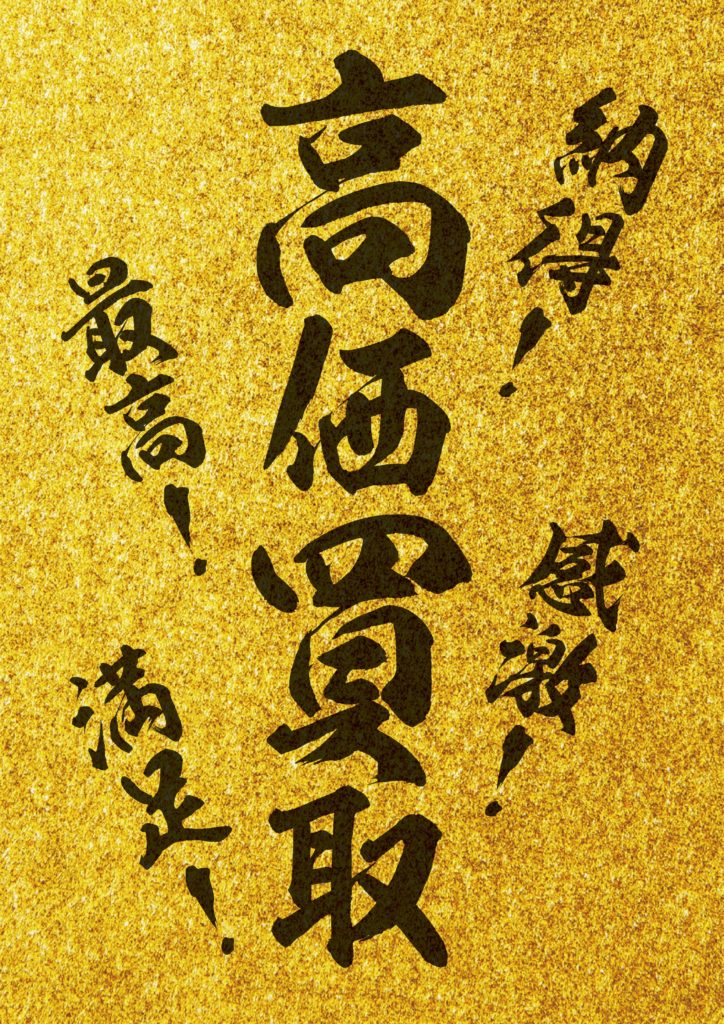 納得!
感激!
高価買取
最高!
満足!